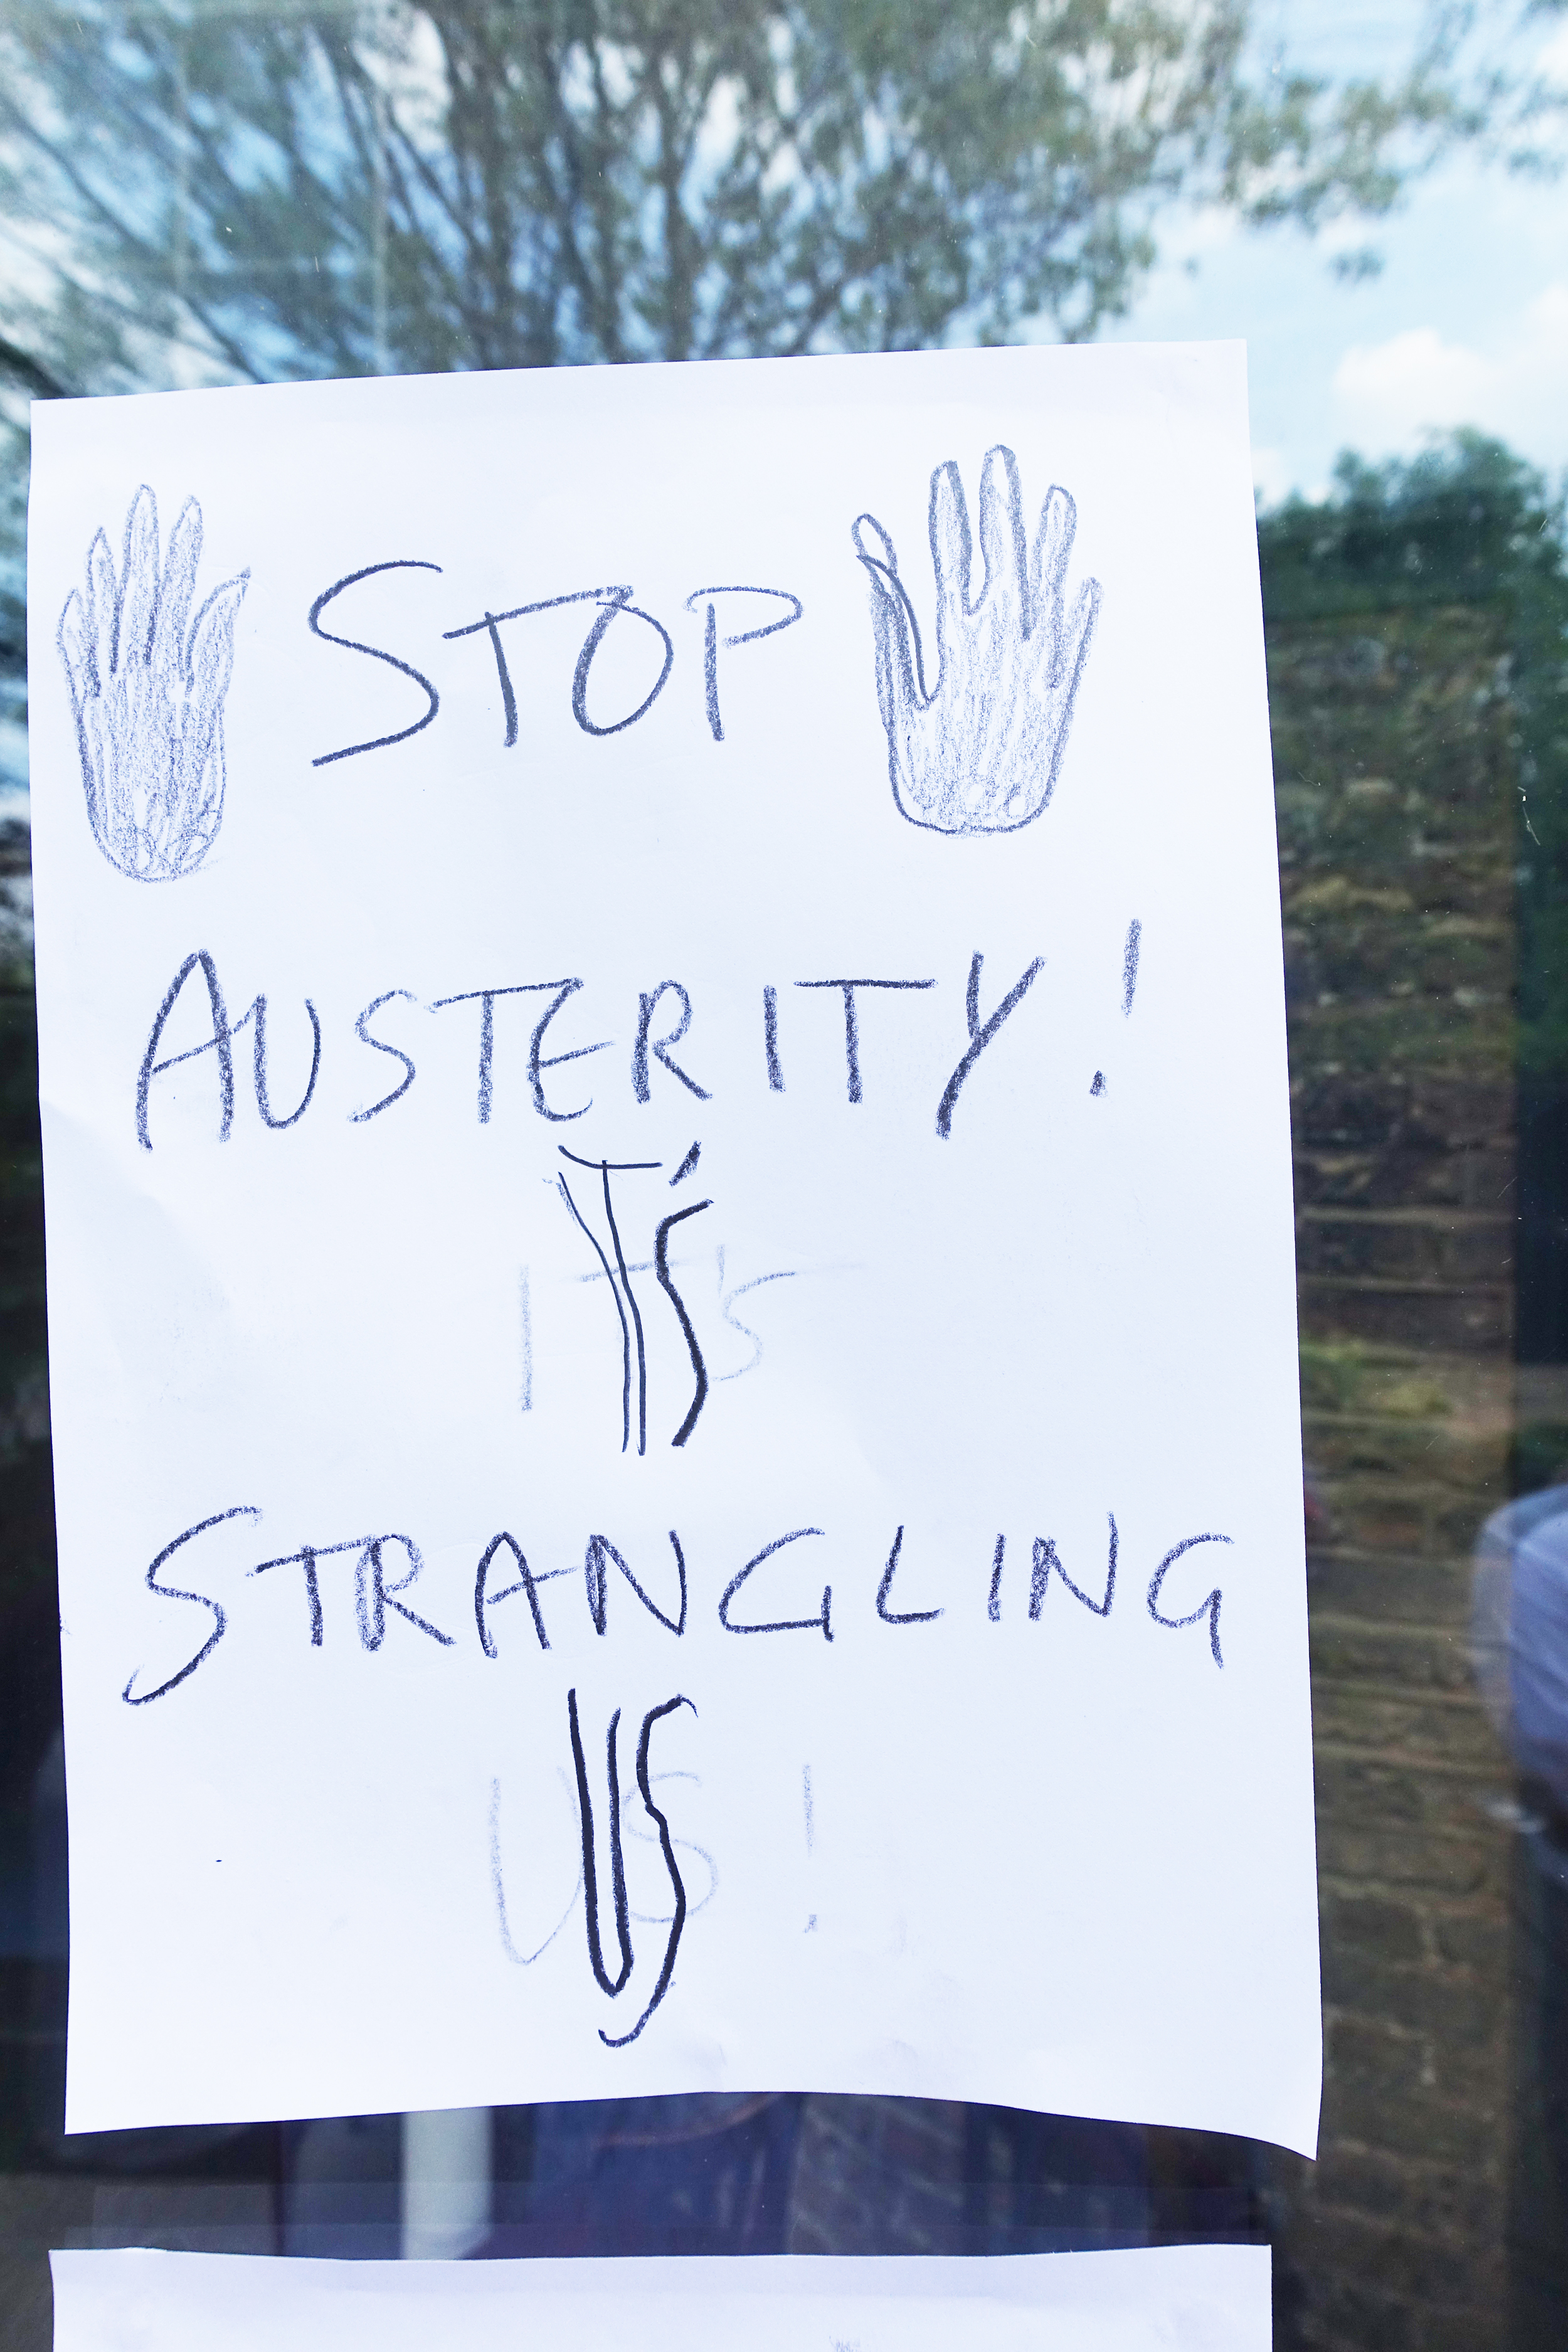 STOP
AUSTERITY!
IT'S
STRANGLING
US!